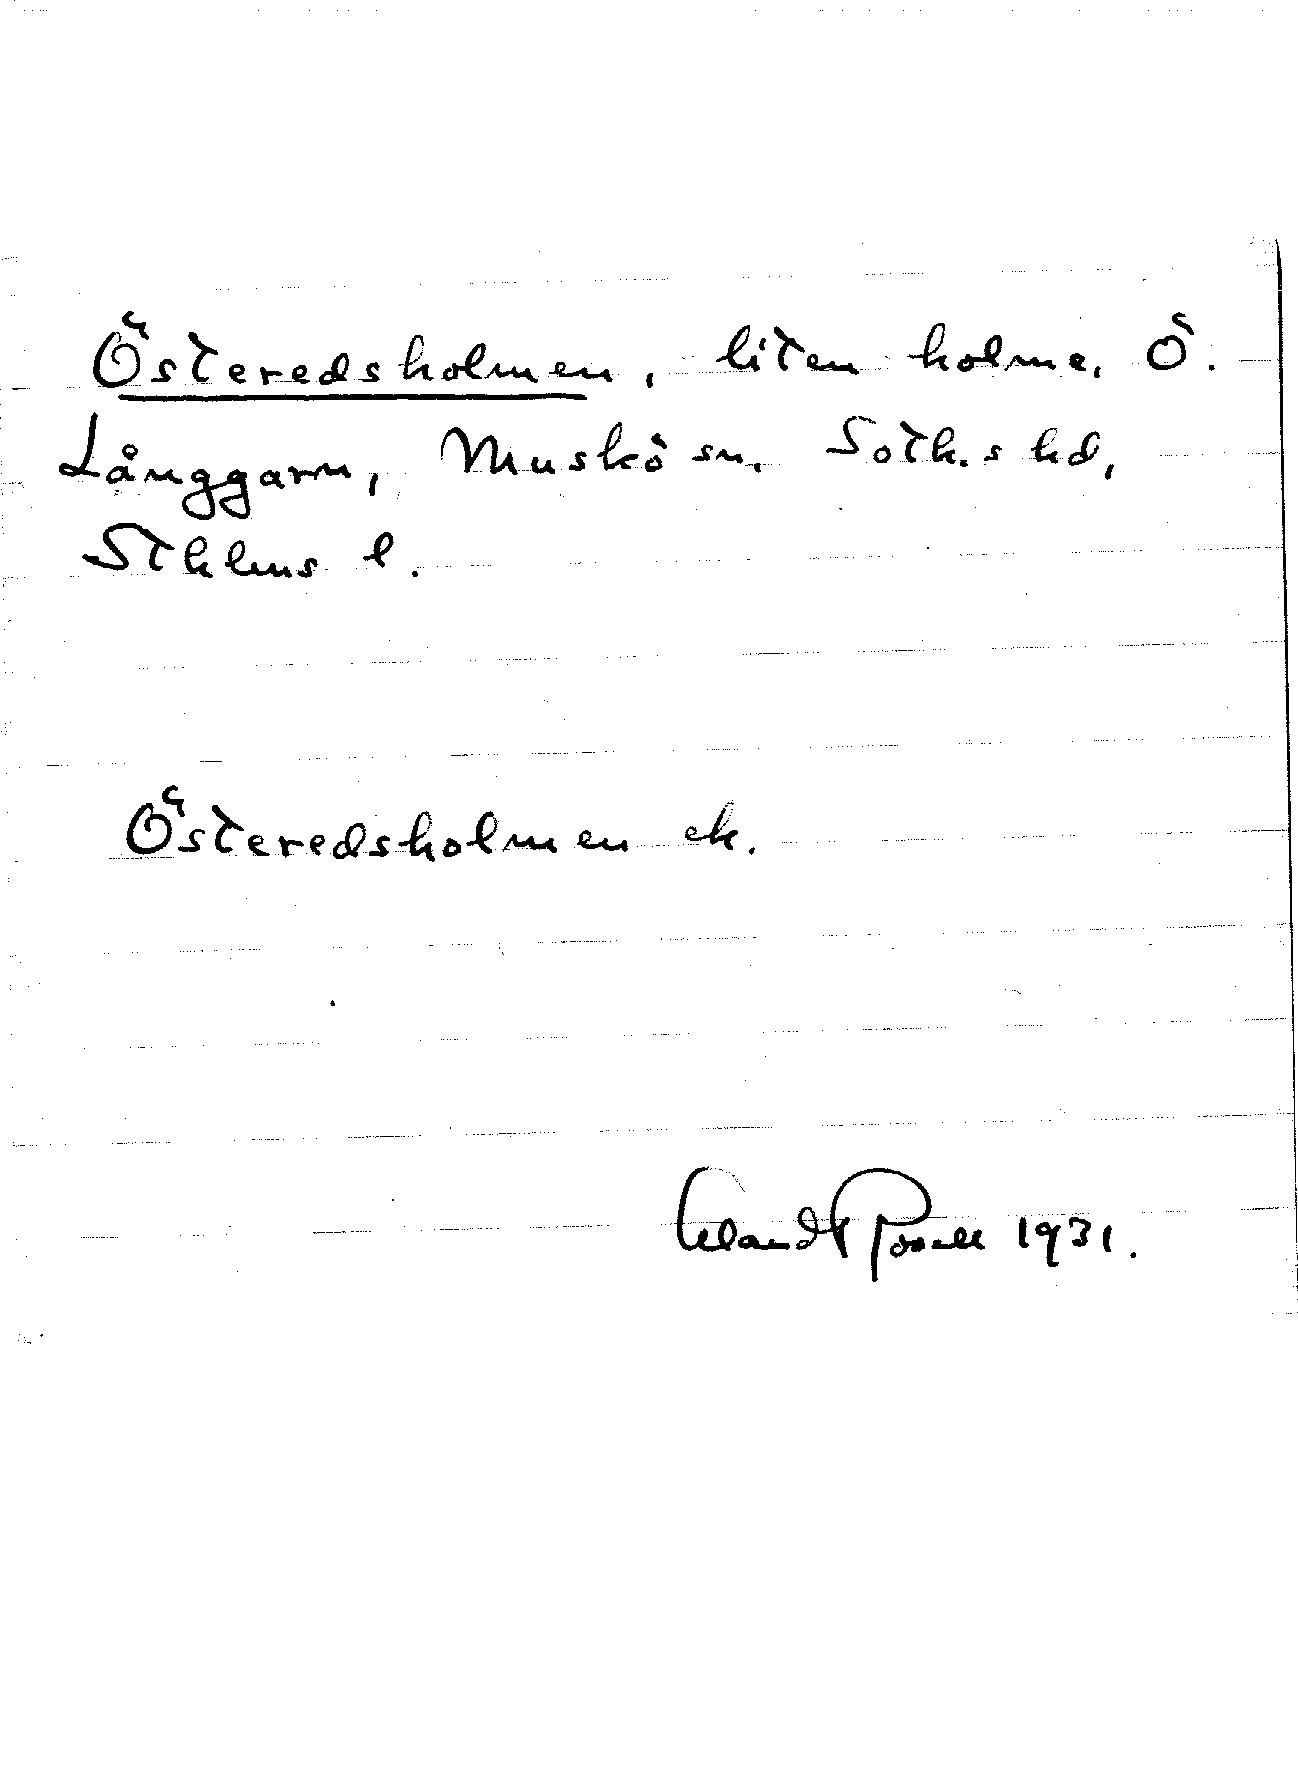 Österedsholmen, liten holme, Ö.
Långgarn, Muskö sn, Soth.s hd,
Sthlms l.
Österedsholmen ek.
Erland Rosell 1931.